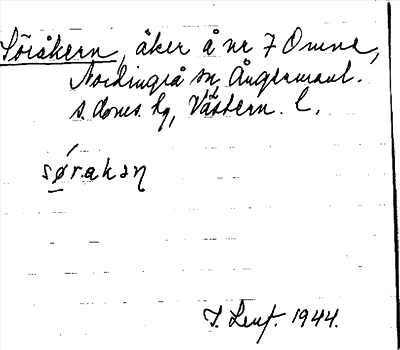 Söråkern, åker å nr 7 Omne,
Nordingrå sn Ångermanl.
s. doms. hg, Västern. l.
sørakən
J. Leuf. 1944.